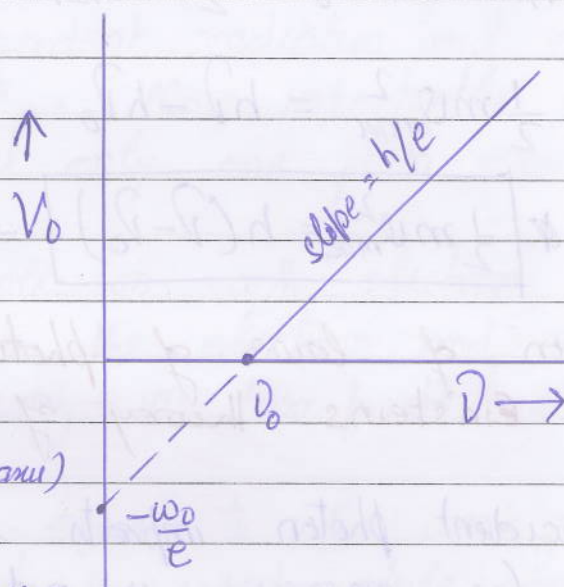 ↑
V₀
slope = h/e
ν₀
ν →
-ω₀/e